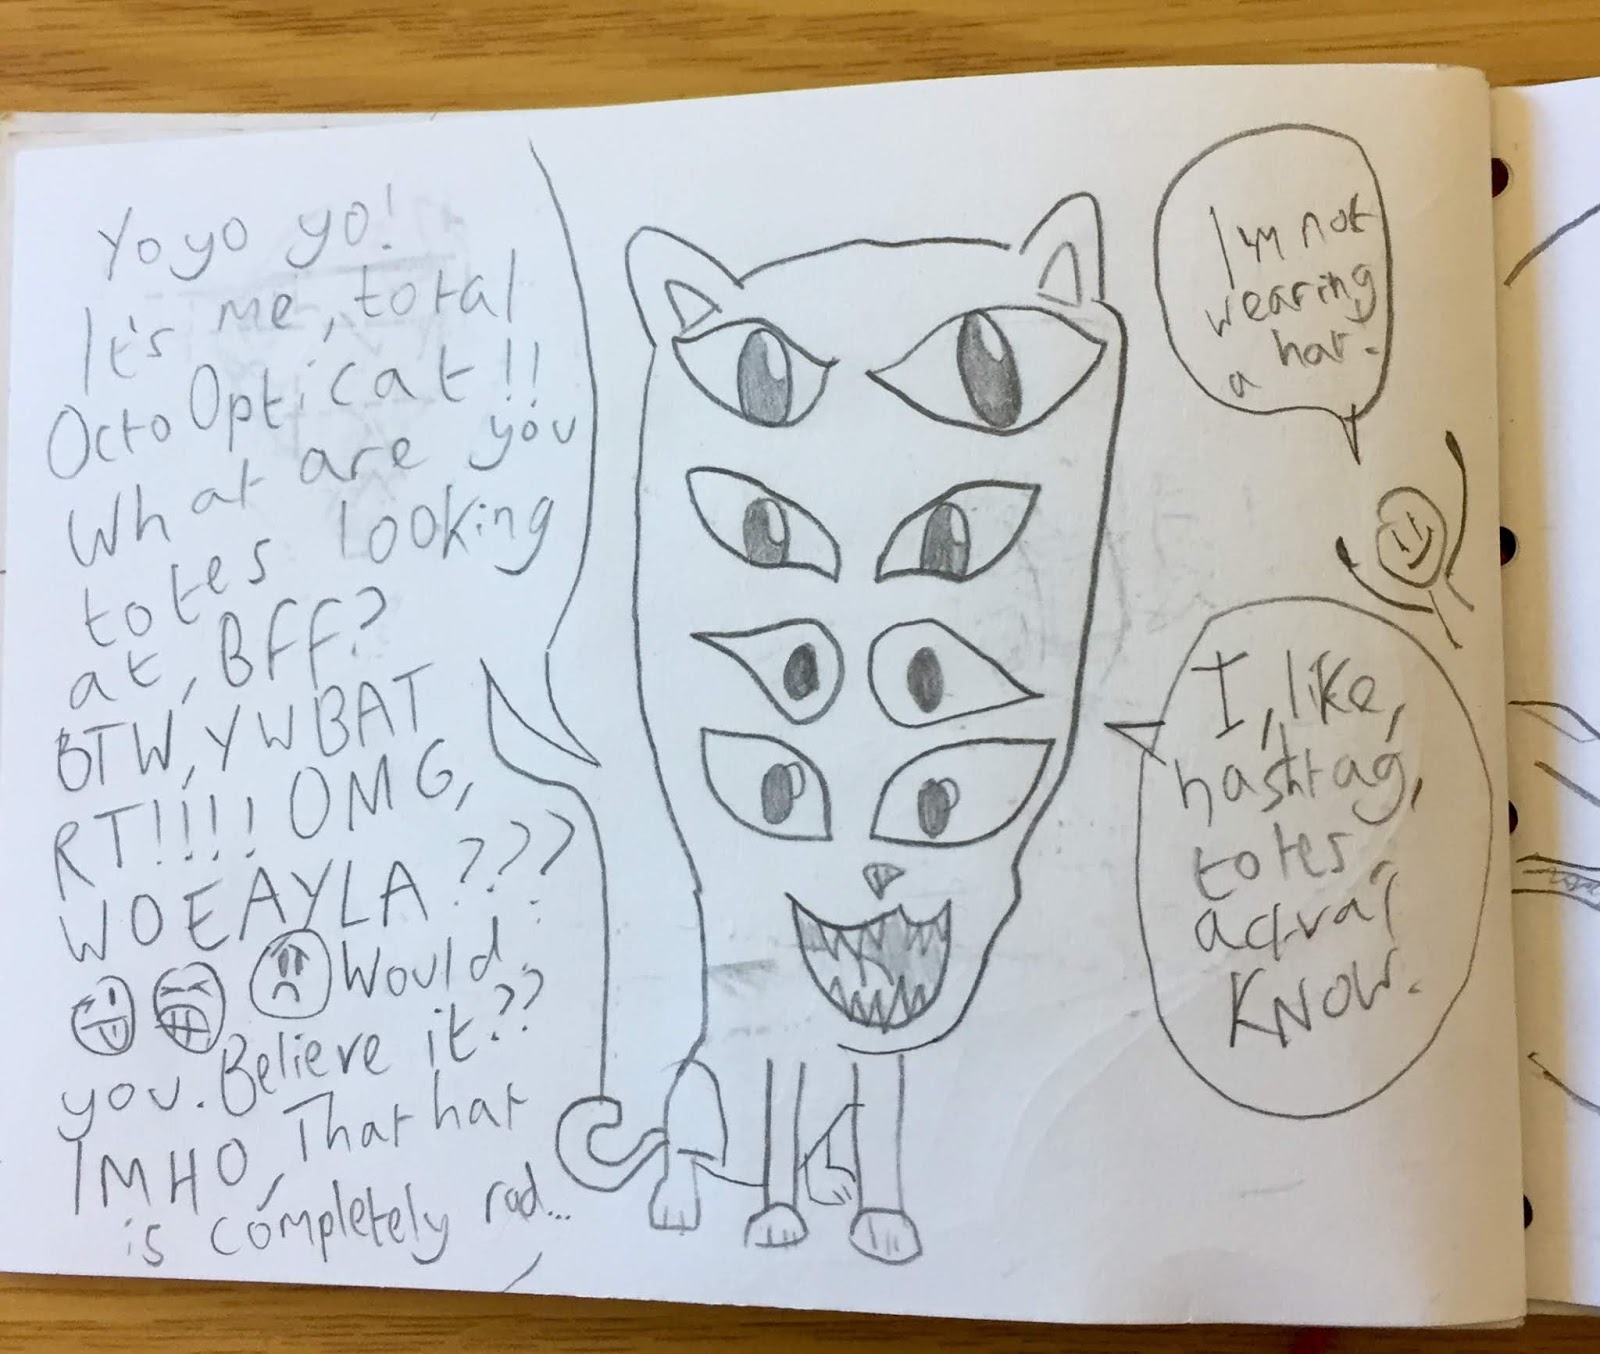 Yo yo yo!
It's me, total
Octo Opticat!!
What are you
totes looking
at, BFF?
BTW, YWBAT
RT!!!! OMG,
WOEAYLA???
Would
you. Believe it??
IMHO, That hat
is completely rad...
I'm not
wearing
a hat.
I, like,
hashtag,
totes
actual
KNOW.